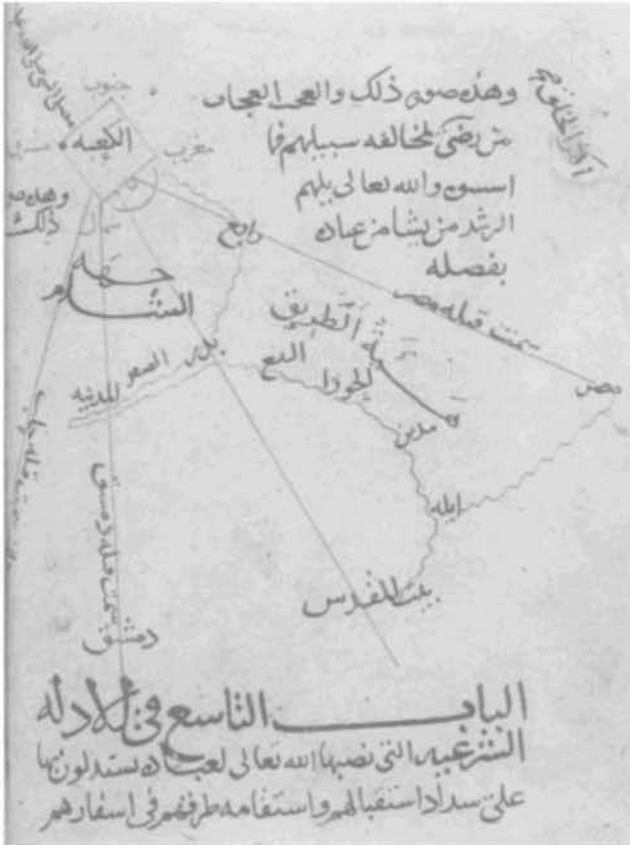 وهذه صوره ذلك والعجب العجاب
من رضى لمخالفه سبيلهم فما
اسسوه والله تعالى يلهم
الرشد من يشا من عباده
بفضله
جنوب
الكعبه
مغرب
مشرق
شمال
وهذه
ذلك
جهه
الشام
رابغ
سمت قبله مصر
مصر
الطريق
بدر
الصفر
للمدينه
الينبع
الحورا
مدين
ايله
بيت المقدس
سمت قبله دمشق
دمشق
الباب التاسع في الادله
الشرعيه التي نصبها الله تعالى لعباده يستدلون بها
على سداد استقبالهم واستقامه طرقهم في اسفارهم